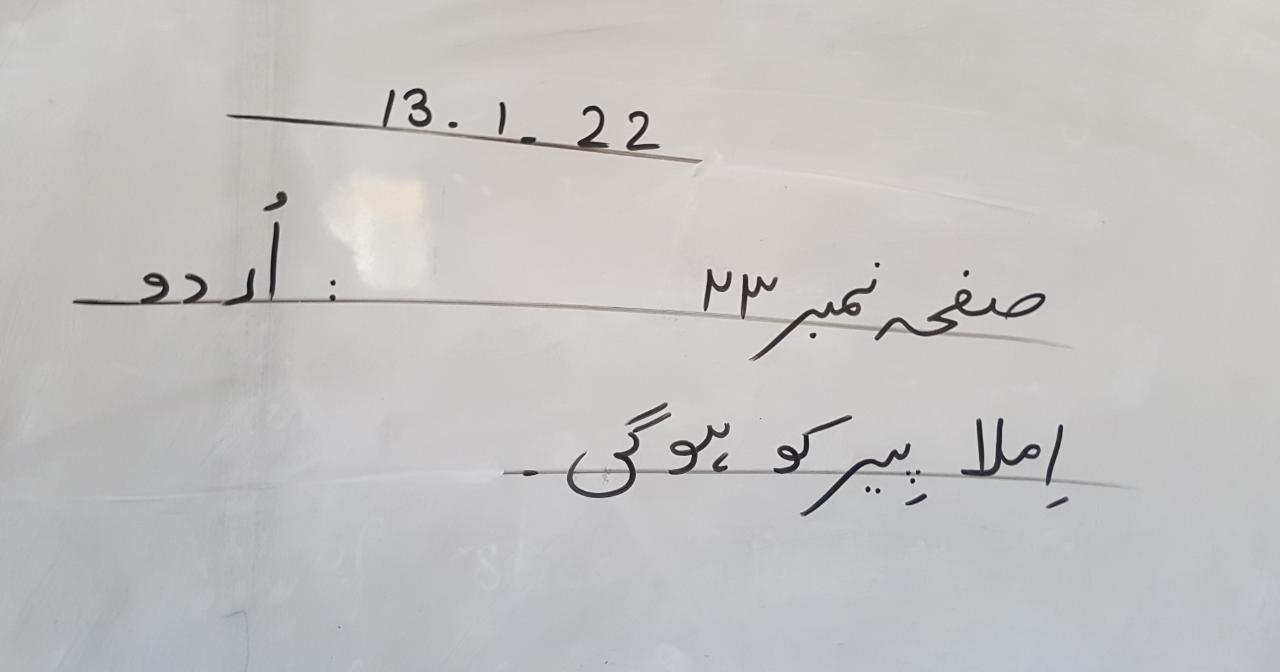 13.1.22
صفحہ نمبر ۲۳ : اُردو
اِملا پِیر کو ہوگی ۔